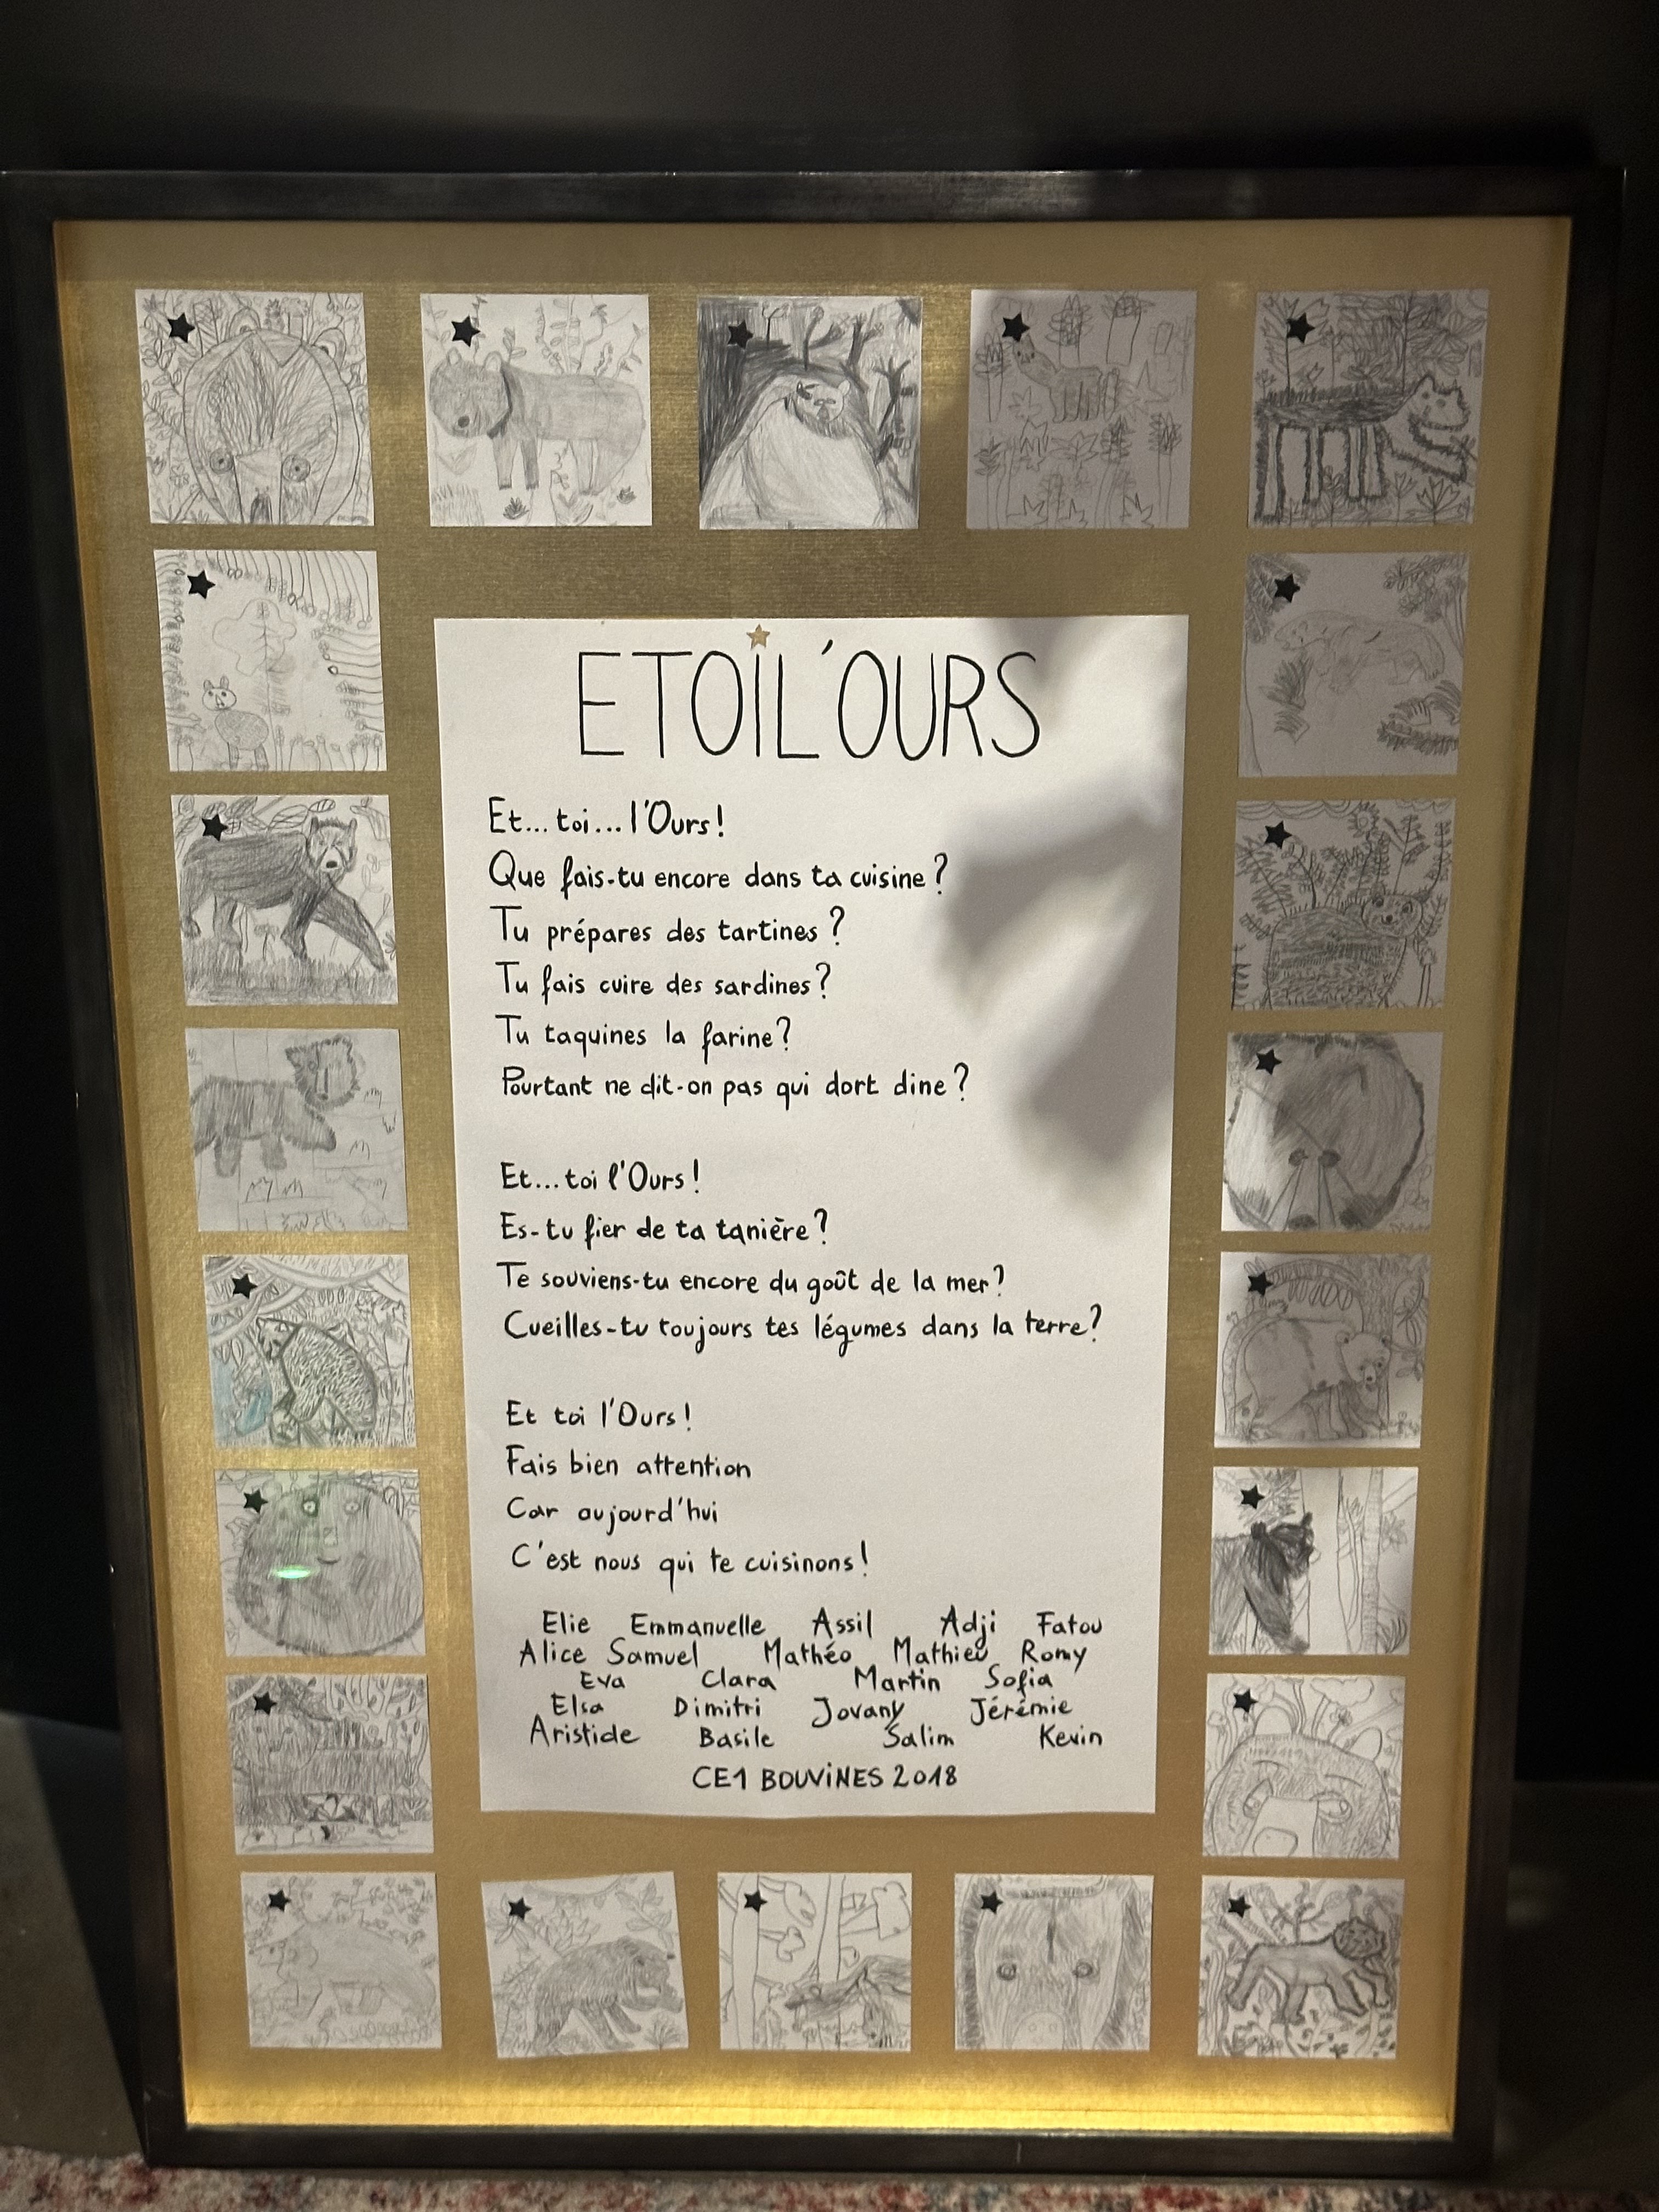 ETOIL'OURS
Et...toi...l'Ours!
Que fais-tu encore dans ta cuisine?
Tu prépares des tartines?
Tu fais cuire des sardines?
Tu taquines la farine?
Pourtant ne dit-on pas qui dort dine?
Et...toi l'Ours!
Es-tu fier de ta tanière?
Te souviens-tu encore du goût de la mer?
Cueilles-tu toujours tes légumes dans la terre?
Et toi l'Ours!
Fais bien attention
Car aujourd'hui
C'est nous qui te cuisinons!
Elie Emmanuelle Assil Adji Fatou
Alice Samuel Mathéo Mathieu Romy
Eva Clara Martin Sofia
Elsa Dimitri Jovany Jérémie
Aristide Basile Salim Kevin
CE1 BOUVINES 2018